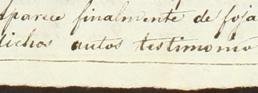 aparece finalmente de foja
dichos autos testimonio